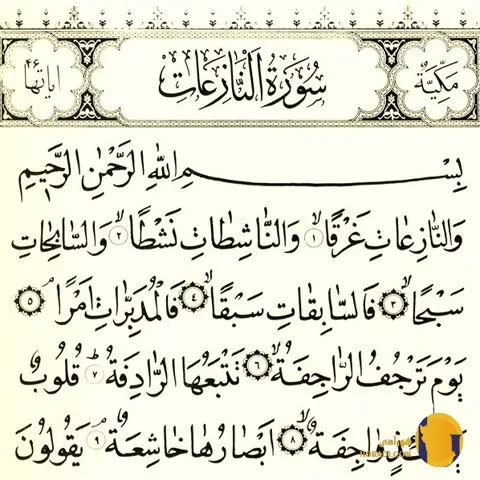 مَكِّيَّة سُورَةُ النَّازِعَاتِ اياتها ٤٦
بِسْمِ اللهِ الرَّحْمٰنِ الرَّحِيمِ
وَالنَّازِعَاتِ غَرْقًا ١ وَالنَّاشِطَاتِ نَشْطًا ٢ وَالسَّابِحَاتِ
سَبْحًا ٣ فَالسَّابِقَاتِ سَبْقًا ٤ فَالْمُدَبِّرَاتِ اَمْرًا ٥
يَوْمَ تَرْجُفُ الرَّاجِفَةُ ٦ تَتْبَعُهَا الرَّادِفَةُ ٧ قُلُوبٌ
وَاجِفَةٌ ٨ اَبْصَارُهَا خَاشِعَةٌ ٩ يَقُولُونَ